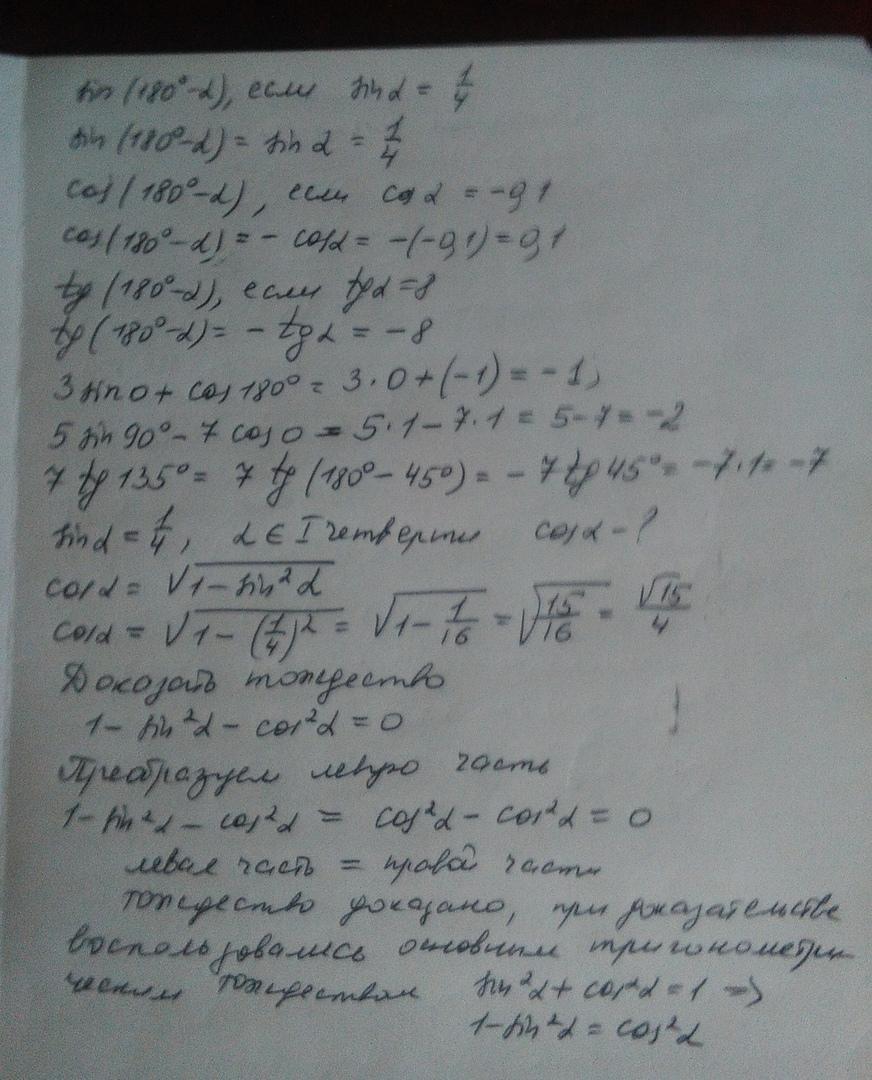 sin (180°-α), если sin α = 1/4
sin (180°-α) = sin α = 1/4
cos (180°-α), если cos α = -0,1
cos (180°-α) = - cos α = -(-0,1) = 0,1
tg (180°-α), если tg α = 8
tg (180°-α) = - tg α = -8
3 sin 0 + cos 180° = 3·0 + (-1) = -1
5 sin 90° - 7 cos 0 = 5·1 - 7·1 = 5-7 = -2
7 tg 135° = 7 tg (180° - 45°) = - 7 tg 45° = -7·1 = -7
sin α = 1/4, α ∈ I четверти cos α - ?
cos α = √(1 - sin²α)
cos α = √(1 - (1/4)²) = √(1 - 1/16) = √(15/16) = √15/4
Доказать тождество
1 - sin²α - cos²α = 0
Преобразуем левую часть
1 - sin²α - cos²α = cos²α - cos²α = 0
левая часть = правой части
тождество доказано, при доказательстве
воспользовались основным тригонометри-
ческим тождеством sin²α + cos²α = 1 =>
1 - sin²α = cos²α